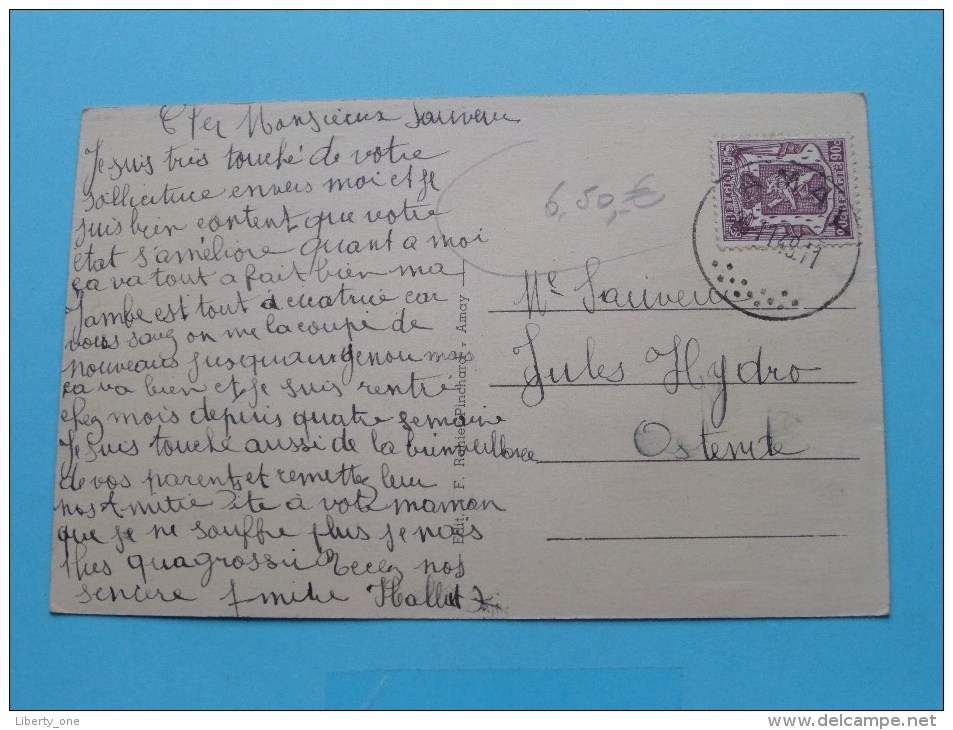 Cher Monsieux Sauveur
Je suis très touché de votre
sollicituce envers moi et je
suis bien content que votre
etat s'améliore quant a moi
ça va tout a fait bien ma
Jambe est tout a cicatricé car
vous savez on me la coupé de
nouveaux jusquaux genou mais
ça va bien et je suis rentré
chez mois depuis quatre semaine
Je suis touché aussi de la bienveillance
de vos parent et remettez leur
nos Amitié Dite à votre maman
que je ne souffre plus je nais
plus quagrossir Recez nos
sencère Amitié Hallet
6,50,- €
BELGIQUE
BELGIË
90c
Mr Sauveur
Jules Hydro
Ostende
Edit. F. Renier-Pinchart - Amay
Liberty_one
http://www.delcampe.net